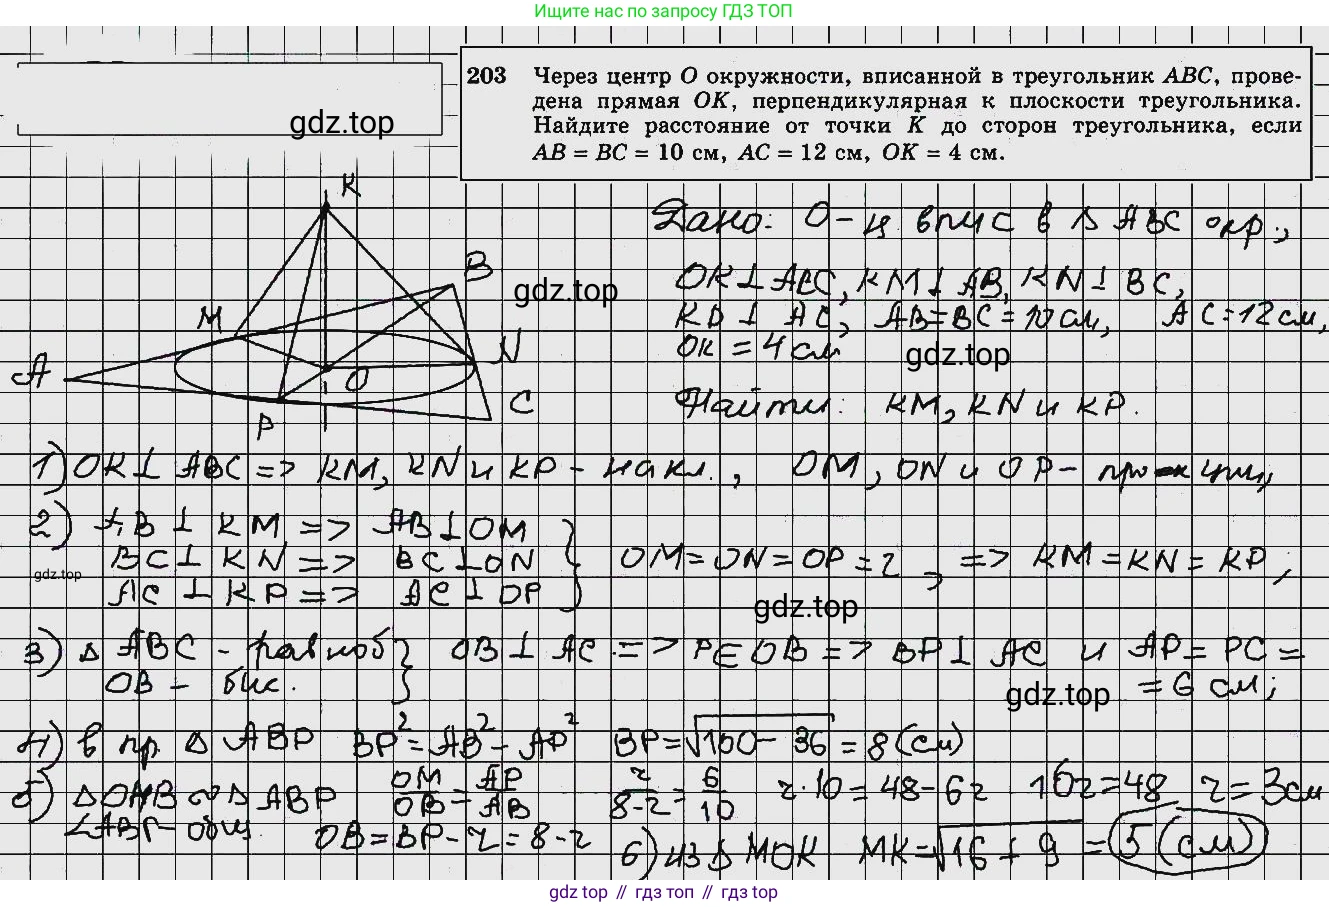 Ищите нас по запросу ГДЗ ТОП
203 Через центр O окружности, вписанной в треугольник ABC, прове-
дена прямая OK, перпендикулярная к плоскости треугольника.
Найдите расстояние от точки K до сторон треугольника, если
AB = BC = 10 см, AC = 12 см, OK = 4 см.
gdz.top
K
B
M
N
A
O
C
P
Дано: O – ц. впис в △ ABC окр.,
gdz.top
OK ⊥ ABC, KM ⊥ AB, KN ⊥ BC,
KP ⊥ AC, AB = BC = 10 см, AC = 12 см,
OK = 4 см
gdz.top
Найти: KM, KN и KP.
1) OK ⊥ ABC => KM, KN и KP – накл., OM, ON и OP – проекции,
2) AB ⊥ KM => AB ⊥ OM
BC ⊥ KN => BC ⊥ ON } OM = ON = OP = r, => KM = KN = KP;
gdz.top
AC ⊥ KP => AC ⊥ OP
gdz.top
3) △ ABC – равноб } OB ⊥ AC => P ∈ OB => BP ⊥ AC и AP = PC =
OB – бис. = 6 см;
gdz.top
4) в пр. △ ABP BP² = AB² – AP² BP = √100 – 36 = 8 (см)
5) △ OMB ∾ △ ABP OM/OB = AP/AB r/8-r = 6/10 r·10 = 48 – 6r 16r = 48 r = 3см
∠ABP – общ. OB = BP – r = 8 – r
6) из △ MOK MK = √16 + 9 = 5 (см)
gdz.top // гдз топ // gdz.top // гдз top